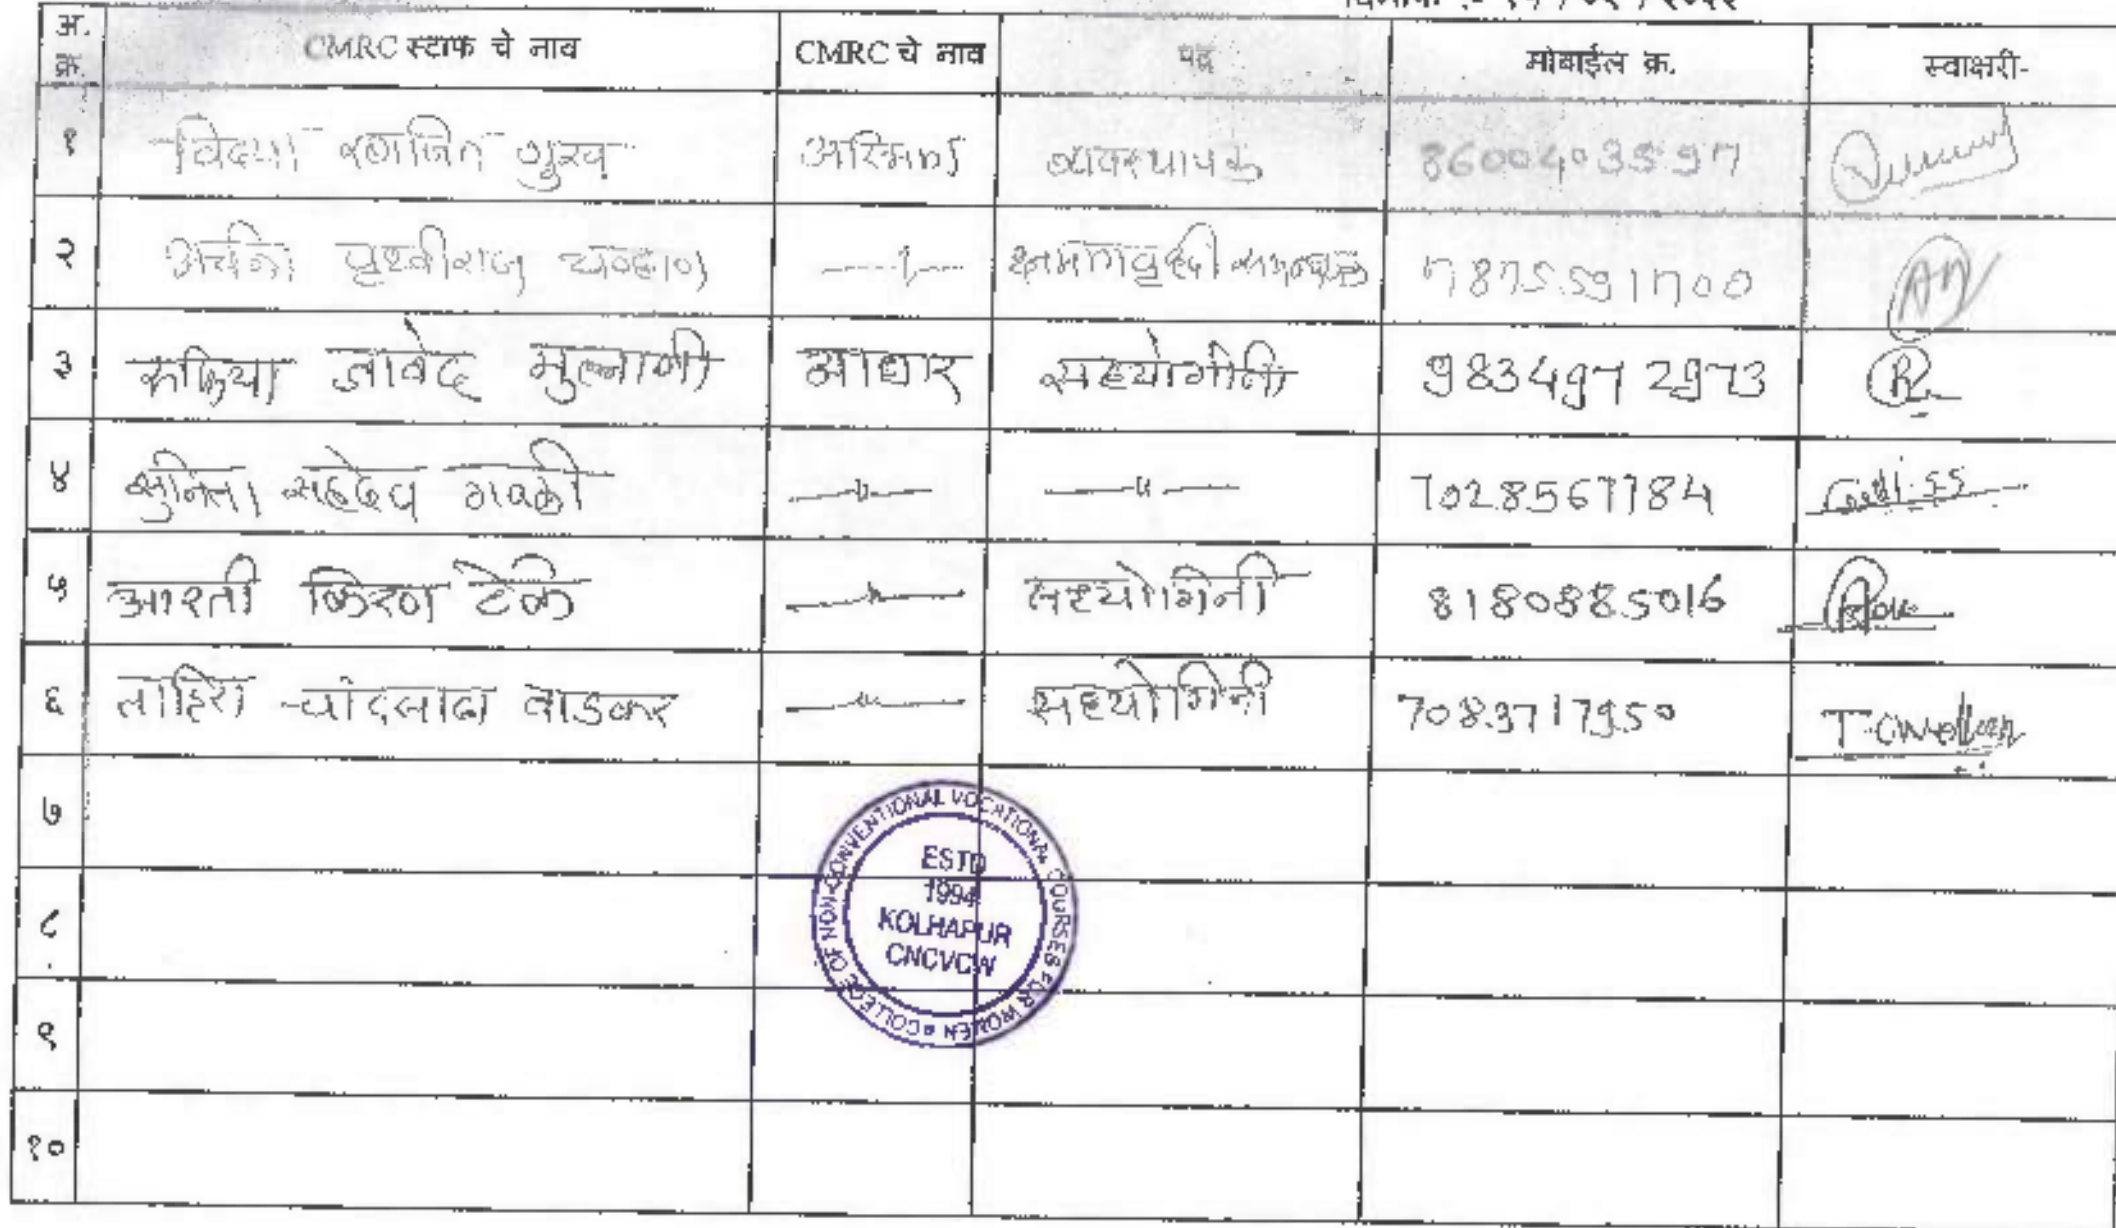 अ. क्र. CMRC स्टाफ चे नाव CMRC चे नाव पद मोबाईल क्र. स्वाक्षरी-
१ विदया रणजित गुरव अस्मिता व्यवस्थापक 8600403597
२ अर्चना पृथ्वीराज चव्हाण —〃— 7875591700
३ रुकिया जावेद मुल्लाणी आधार सहयोगीनी 9834972973
४ सुनिता सहदेव —〃— —〃— 7028567784
५ आरती किरण टेके —〃— सहयोगिनी 8180885016
६ ताहिरा चांदलाल वाडकर —〃— सहयोगिनी 7083717950
७
८
९
१०
COLLEGE OF NON-CONVENTIONAL VOCATIONAL COURSES FOR WOMEN
ESTD
1994
KOLHAPUR
CNCVCW